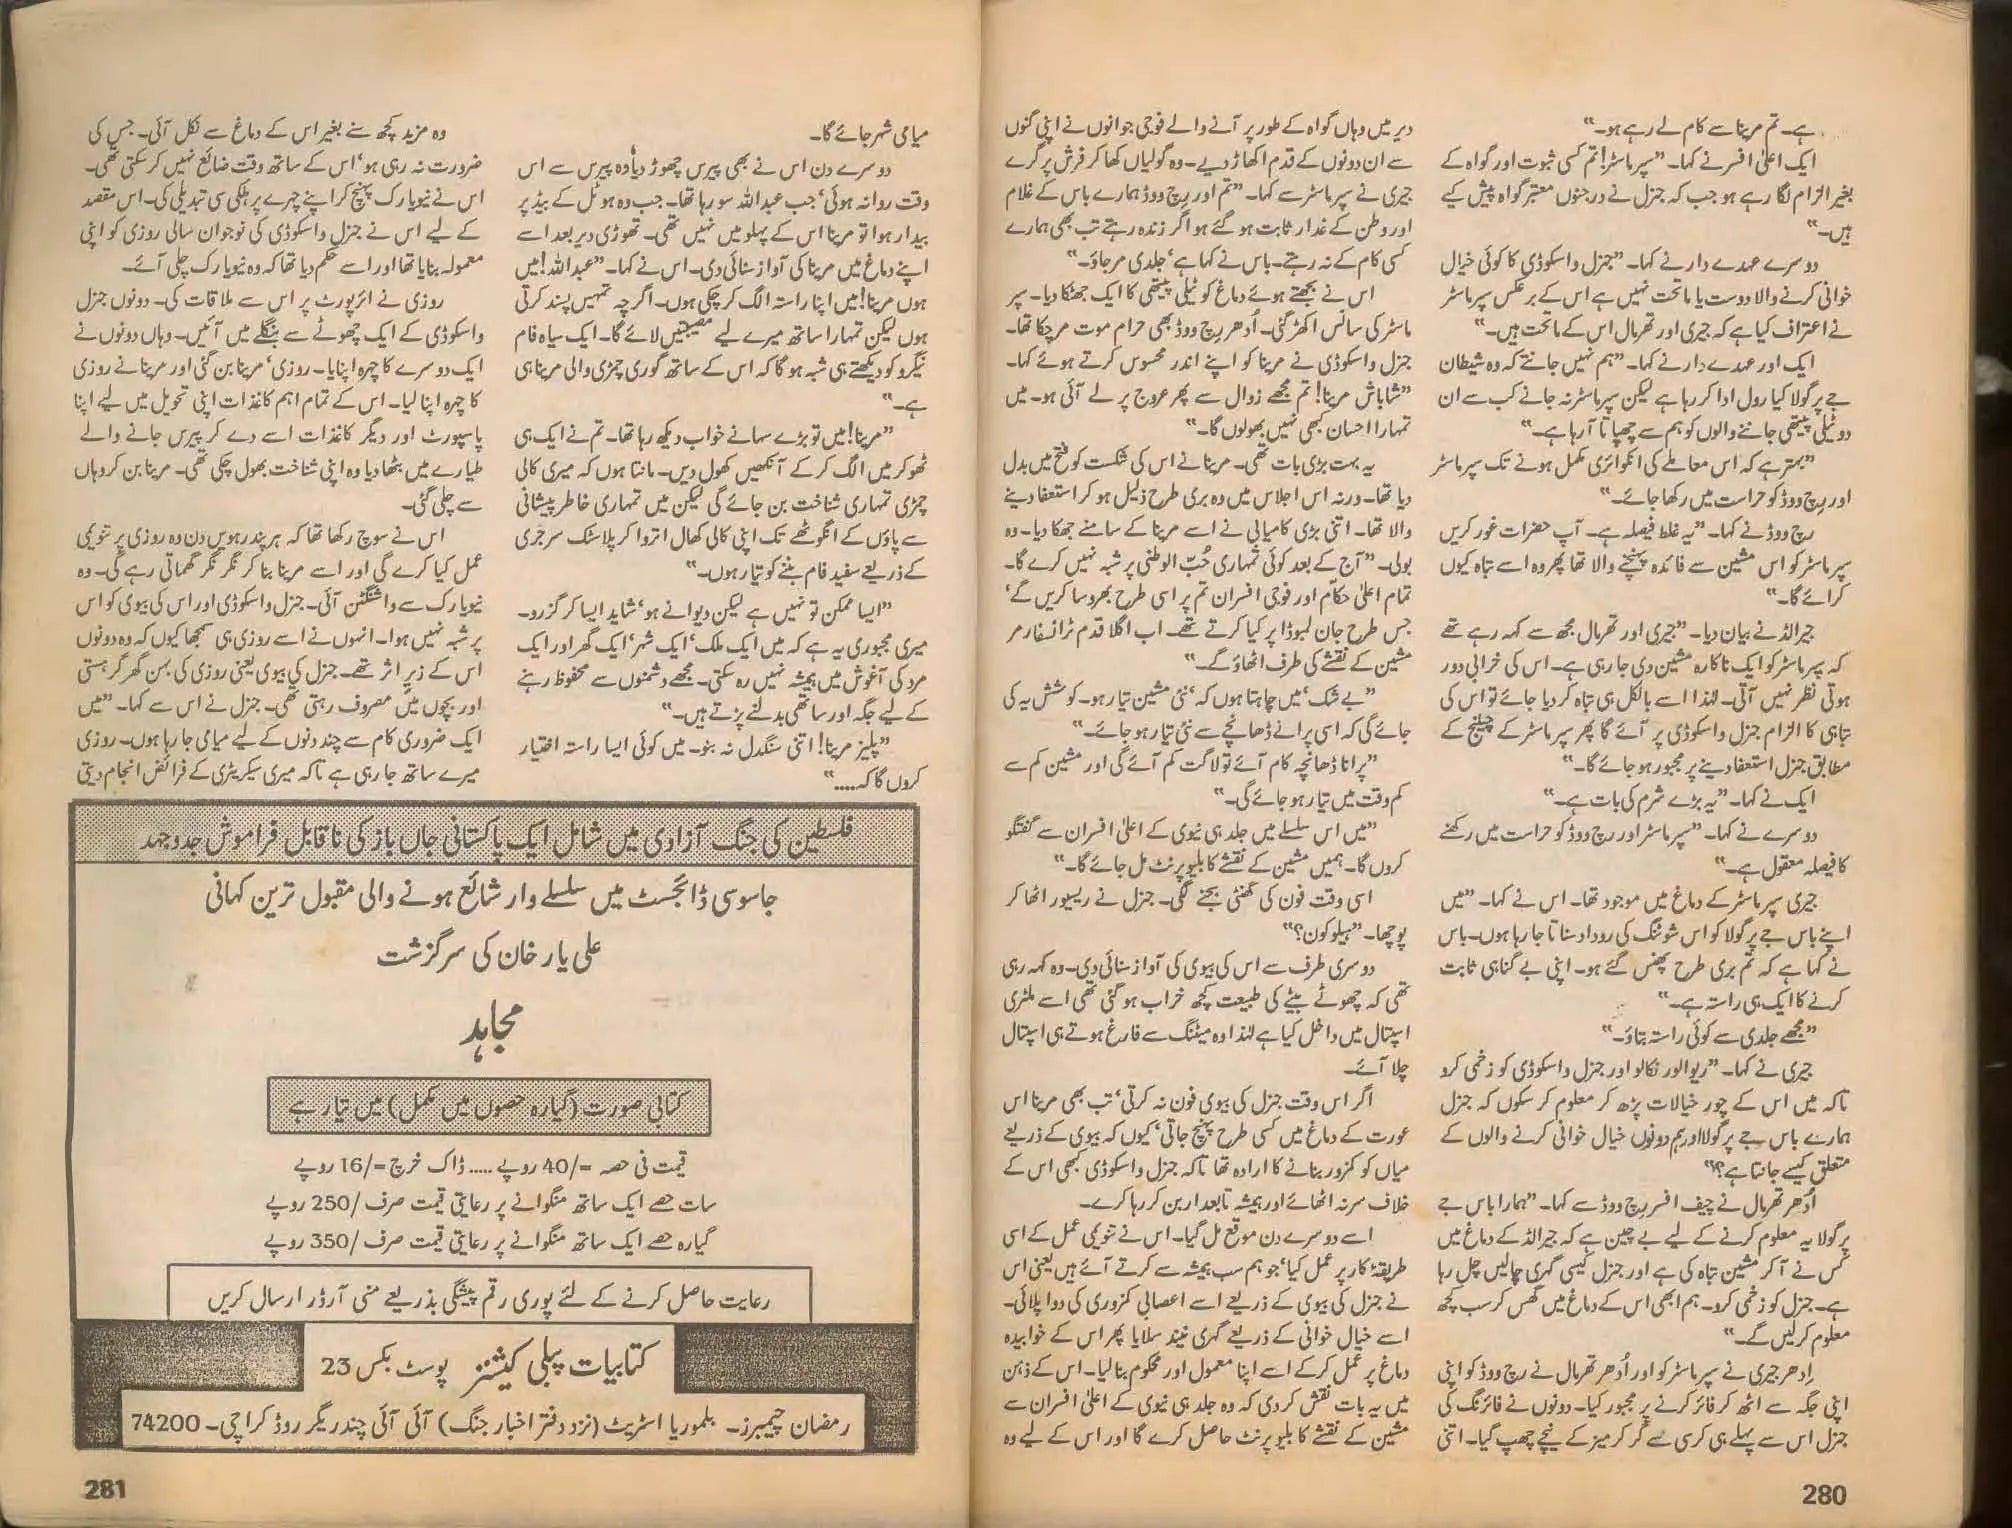 ہے۔ تم مرینا سے کام لے رہے ہو۔"
ایک اعلیٰ افسر نے کہا۔ "سپر ماسٹر! تم کسی ثبوت اور گواہ کے
بغیر الزام لگا رہے ہو جب کہ جنرل نے درجنوں معتبر گواہ پیش کیے
ہیں۔"
دوسرے عہدے دار نے کہا۔ "جنرل واسکوڈی کا کوئی خیال
خوانی کرنے والا دوست یا ماتحت نہیں ہے اس کے برعکس سپر ماسٹر
نے اعتراف کیا ہے کہ جیری اور تھرمال اس کے ماتحت ہیں۔"
ایک اور عہدے دار نے کہا۔ "ہم نہیں جانتے کہ وہ شیطان
جے پرگولا کیا رول ادا کر رہا ہے لیکن سپر ماسٹر نہ جانے کب سے ان
دو ٹیلی پیتھی جاننے والوں کو ہم سے چھپاتا آ رہا ہے۔"
"بہتر ہے کہ اس معاملے کی انکوائری مکمل ہونے تک سپر ماسٹر
اور رچ ووڈ کو حراست میں رکھا جائے۔"
رچ ووڈ نے کہا۔ "یہ غلط فیصلہ ہے۔ آپ حضرات غور کریں
سپر ماسٹر کو اس مشین سے فائدہ پہنچنے والا تھا پھر وہ اسے تباہ کیوں
کرائے گا۔"
جیرالڈ نے بیان دیا۔ "جیری اور تھرمال مجھ سے کہہ رہے تھے
کہ سپر ماسٹر کو ایک ناکارہ مشین دی جا رہی ہے۔ اس کی خرابی دور
ہوتی نظر نہیں آتی۔ لہٰذا اسے بالکل ہی تباہ کر دیا جائے تو اس کی
تباہی کا الزام جنرل واسکوڈی پر آئے گا پھر سپر ماسٹر کے چیلنج کے
مطابق جنرل استعفا دینے پر مجبور ہو جائے گا۔"
ایک نے کہا۔ "یہ بڑے شرم کی بات ہے۔"
دوسرے نے کہا۔ "سپر ماسٹر اور رچ ووڈ کو حراست میں رکھنے
کا فیصلہ معقول ہے۔"
جیری سپر ماسٹر کے دماغ میں موجود تھا۔ اس نے کہا۔ "میں
اپنے باس جے پرگولا کو اس شوٹنگ کی روداد سناتا جا رہا ہوں۔ باس
نے کہا ہے کہ تم بری طرح پھنس گئے ہو۔ اپنی بے گناہی ثابت
کرنے کا ایک ہی راستہ ہے۔"
"مجھے جلدی سے کوئی راستہ بتاؤ۔"
جیری نے کہا۔ "ریوالور نکالو اور جنرل واسکوڈی کو زخمی کرو
تاکہ میں اس کے چور خیالات پڑھ کر معلوم کر سکوں کہ جنرل
ہمارے باس جے پرگولا اور ہم دونوں خیال خوانی کرنے والوں کے
متعلق کیسے جانتا ہے؟"
اُدھر تھرمال نے چیف افسر رچ ووڈ سے کہا۔ "ہمارا باس جے
پرگولا یہ معلوم کرنے کے لیے بے چین ہے کہ جیرالڈ کے دماغ میں
کس نے آ کر مشین تباہ کی ہے اور جنرل کیسی گہری چالیں چل رہا
ہے۔ جنرل کو زخمی کرو۔ ہم ابھی اس کے دماغ میں گھس کر سب کچھ
معلوم کر لیں گے۔"
اِدھر جیری نے سپر ماسٹر کو اور اُدھر تھرمال نے رچ ووڈ کو اپنی
اپنی جگہ سے اٹھ کر فائر کرنے پر مجبور کیا۔ دونوں نے فائرنگ کی
جنرل اس سے پہلے ہی کرسی سے گر کر میز کے نیچے چھپ گیا۔ اتنی
دیر میں وہاں گواہ کے طور پر آنے والے فوجی جوانوں نے اپنی گنوں
سے ان دونوں کے قدم اکھاڑ دیے۔ وہ گولیاں کھا کر فرش پر گرے
جیری نے سپر ماسٹر سے کہا۔ "تم اور رچ ووڈ ہمارے باس کے غلام
اور وطن کے غدار ثابت ہو گئے ہو اگر زندہ رہتے تب بھی ہمارے
کسی کام کے نہ رہتے۔ باس نے کہا ہے' جلدی مر جاؤ۔"
اس نے بجھتے ہوئے دماغ کو ٹیلی پیتھی کا ایک جھٹکا دیا۔ سپر
ماسٹر کی سانس اکھڑ گئی۔ اُدھر رچ ووڈ بھی حرام موت مر چکا تھا۔
جنرل واسکوڈی نے مرینا کو اپنے اندر محسوس کرتے ہوئے کہا۔
"شاباش مرینا! تم مجھے زوال سے پھر عروج پر لے آئی ہو۔ میں
تمہارا احسان کبھی نہیں بھولوں گا۔"
یہ بہت بڑی بات تھی۔ مرینا نے اس کی شکست کو فتح میں بدل
دیا تھا۔ ورنہ اس اجلاس میں وہ بری طرح ذلیل ہو کر استعفا دینے
والا تھا۔ اتنی بڑی کامیابی نے اسے مرینا کے سامنے جھکا دیا۔ وہ
بولی۔ "آج کے بعد کوئی تمہاری حُبّ الوطنی پر شبہ نہیں کرے گا۔
تمام اعلیٰ حکام اور فوجی افسران تم پر اسی طرح بھروسا کریں گے'
جس طرح جان لیوڈا پر کیا کرتے تھے۔ اب اگلا قدم ٹرانسفارمر
مشین کے نقشے کی طرف اٹھاؤ گے۔"
"بے شک' میں چاہتا ہوں کہ' نئی مشین تیار ہو۔ کوشش یہ کی
جائے گی کہ اسی پرانے ڈھانچے سے نئی تیار ہو جائے۔"
"پرانا ڈھانچہ کام آئے تو لاگت کم آئے گی اور مشین کم سے
کم وقت میں تیار ہو جائے گی۔"
"میں اس سلسلے میں جلد ہی نیوی کے اعلیٰ افسران سے گفتگو
کروں گا۔ ہمیں مشین کے نقشے کا بلیو پرنٹ مل جائے گا۔"
اسی وقت فون کی گھنٹی بجنے لگی۔ جنرل نے ریسیور اٹھا کر
پوچھا۔ "ہیلو کون؟"
دوسری طرف سے اس کی بیوی کی آواز سنائی دی۔ وہ کہہ رہی
تھی کہ چھوٹے بیٹے کی طبیعت کچھ خراب ہو گئی تھی اسے ملٹری
اسپتال میں داخل کیا ہے لہٰذا وہ میٹنگ سے فارغ ہوتے ہی اسپتال
چلا آئے۔
اگر اس وقت جنرل کی بیوی فون نہ کرتی' تب بھی مرینا اس
عورت کے دماغ میں کسی طرح پہنچ جاتی' کیوں کہ بیوی کے ذریعے
میاں کو کمزور بنانے کا ارادہ تھا تاکہ جنرل واسکوڈی کبھی اس کے
خلاف سر نہ اٹھائے اور ہمیشہ تابعدار بن کر رہا کرے۔
اسے دوسرے دن موقع مل گیا۔ اس نے تنویمی عمل کے اسی
طریقۂ کار پر عمل کیا' جو ہم سب ہمیشہ سے کرتے آئے ہیں یعنی اس
نے جنرل کی بیوی کے ذریعے اسے اعصابی کمزوری کی دوا پلائی۔
اسے خیال خوانی کے ذریعے گہری نیند سلایا پھر اس کے خوابیدہ
دماغ پر عمل کر کے اسے اپنا معمول اور محکوم بنا لیا۔ اس کے ذہن
میں یہ بات نقش کر دی کہ وہ جلد ہی نیوی کے اعلیٰ افسران سے
مشین کے نقشے کا بلیو پرنٹ حاصل کرے گا اور اس کے لیے وہ
280
میامی شہر جائے گا۔
دوسرے دن اس نے بھی پیرس چھوڑ دیا' وہ پیرس سے اس
وقت روانہ ہوئی' جب عبداللہ سو رہا تھا۔ جب وہ ہوٹل کے بیڈ پر
بیدار ہوا تو مرینا اس کے پہلو میں نہیں تھی۔ تھوڑی دیر بعد اسے
اپنے دماغ میں مرینا کی آواز سنائی دی۔ اس نے کہا۔ "عبداللہ! میں
ہوں مرینا! میں اپنا راستہ الگ کر چکی ہوں۔ اگرچہ تمہیں پسند کرتی
ہوں لیکن تمہارا ساتھ میرے لیے مصیبتیں لائے گا۔ ایک سیاہ فام
نیگرو کو دیکھتے ہی شبہ ہو گا کہ اس کے ساتھ گوری چمڑی والی مرینا ہی
ہے۔"
"مرینا! میں تو بڑے سہانے خواب دیکھ رہا تھا۔ تم نے ایک ہی
ٹھوکر میں الگ کر کے آنکھیں کھول دیں۔ مانتا ہوں کہ میری کالی
چمڑی تمہاری شناخت بن جائے گی لیکن میں تمہاری خاطر پیشانی
سے پاؤں کے انگوٹھے تک اپنی کالی کھال اتروا کر پلاسٹک سرجری
کے ذریعے سفید فام بننے کو تیار ہوں۔"
"ایسا ممکن تو نہیں ہے لیکن دیوانے ہو' شاید ایسا کر گزرو۔
میری مجبوری یہ ہے کہ میں ایک ملک' ایک شہر' ایک گھر اور ایک
مرد کی آغوش میں ہمیشہ نہیں رہ سکتی۔ مجھے دشمنوں سے محفوظ رہنے
کے لیے جگہ اور ساتھی بدلنے پڑتے ہیں۔"
"پلیز مرینا! اتنی سنگدل نہ بنو۔ میں کوئی ایسا راستہ اختیار
کروں گا کہ....."
وہ مزید کچھ سنے بغیر اس کے دماغ سے نکل آئی۔ جس کی
ضرورت نہ رہی ہو' اس کے ساتھ وقت ضائع نہیں کر سکتی تھی۔
اس نے نیویارک پہنچ کر اپنے چہرے پر ہلکی سی تبدیلی کی۔ اس مقصد
کے لیے اس نے جنرل واسکوڈی کی نوجوان سالی روزی کو اپنی
معمولہ بنایا تھا اور اسے حکم دیا تھا کہ وہ نیویارک چلی آئے۔
روزی نے ائرپورٹ پر اس سے ملاقات کی۔ دونوں جنرل
واسکوڈی کے ایک چھوٹے سے بنگلے میں آئیں۔ وہاں دونوں نے
ایک دوسرے کا چہرہ اپنایا۔ روزی' مرینا بن گئی اور مرینا نے روزی
کا چہرہ اپنا لیا۔ اس کے تمام اہم کاغذات اپنی تحویل میں لیے اپنا
پاسپورٹ اور دیگر کاغذات اسے دے کر پیرس جانے والے
طیارے میں بٹھا دیا وہ اپنی شناخت بھول چکی تھی۔ مرینا بن کر وہاں
سے چلی گئی۔
اس نے سوچ رکھا تھا کہ ہر پندرہویں دن وہ روزی پر تنویمی
عمل کیا کرے گی اور اسے مرینا بنا کر نگر نگر گھماتی رہے گی۔ وہ
نیویارک سے واشنگٹن آئی۔ جنرل واسکوڈی اور اس کی بیوی کو اس
پر شبہ نہیں ہوا۔ انہوں نے اسے روزی ہی سمجھا کیوں کہ وہ دونوں
اس کے زیرِ اثر تھے۔ جنرل کی بیوی یعنی روزی کی بہن گھر گرہستی
اور بچوں میں مصروف رہتی تھی۔ جنرل نے اس سے کہا۔ "میں
ایک ضروری کام سے چند دنوں کے لیے میامی جا رہا ہوں۔ روزی
میرے ساتھ جا رہی ہے تاکہ میری سیکریٹری کے فرائض انجام دیتی
فلسطین کی جنگ آزادی میں شامل ایک پاکستانی جاں باز کی ناقابل فراموش جدوجہد
جاسوسی ڈائجسٹ میں سلسلے وار شائع ہونے والی مقبول ترین کہانی
علی یار خان کی سرگزشت
مجاہد
کتابی صورت (گیارہ حصوں میں مکمل) میں تیار ہے
قیمت فی حصہ =/40 روپے ..... ڈاک خرچ =/16 روپے
سات حصے ایک ساتھ منگوانے پر رعایتی قیمت صرف /250 روپے
گیارہ حصے ایک ساتھ منگوانے پر رعایتی قیمت صرف /350 روپے
رعایت حاصل کرنے کے لئے پوری رقم پیشگی بذریعے منی آرڈر ارسال کریں
کتابیات پبلی کیشنز پوسٹ بکس 23
رمضان چیمبرز۔ بلموریا اسٹریٹ (نزد دفتر اخبار جنگ) آئی آئی چندریگر روڈ کراچی۔ 74200
281